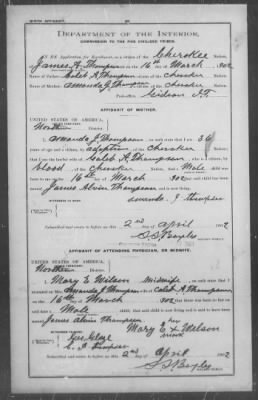 DEPARTMENT OF THE INTERIOR,
COMMISSION TO THE FIVE CIVILIZED TRIBES.
IN RE Application for Enrollment, as a citizen of the Cherokee Nation,
of James A. Thompson, born on the 16th day of March, 1902
Name of Father: Caleb A Thompson a citizen of the Cherokee Nation.
Name of Mother: Amanda J Thompson a citizen of the Cherokee Nation.
Postoffice, Gideon I.T.
AFFIDAVIT OF MOTHER.
UNITED STATES OF AMERICA,
Northern District.
I, Amanda J. Thompson, on oath state that I am 36
years of age and a citizen, by adoption, of the Cherokee Nation;
that I am the lawful wife of Caleb A Thompson, who is a citizen, by
blood of the Cherokee Nation; that a Male child was
born to me on the 16th day of March, 1902; that said child has been
named James Alvin Thompson, and is now living.
Amanda J Thompson
WITNESSES TO MARK:
Subscribed and sworn to before me this 2nd day of April, 1902
AFFIDAVIT OF ATTENDING PHYSICIAN, OR MIDWIFE.
UNITED STATES OF AMERICA,
Northern District.
I, Mary E Wilson, a Midwife, on oath state that I
attended on Mrs. Amanda J Thompson, wife of Caleb A Thompson
on the 16th day of March, 1902; that there was born to her on said date a
Male child; that said child is now living and is said to have been
named James Alvin Thompson
her
Mary E x Wilson
mark
WITNESSES TO MARK:
Subscribed and sworn to before me this 2nd day of April, 1902